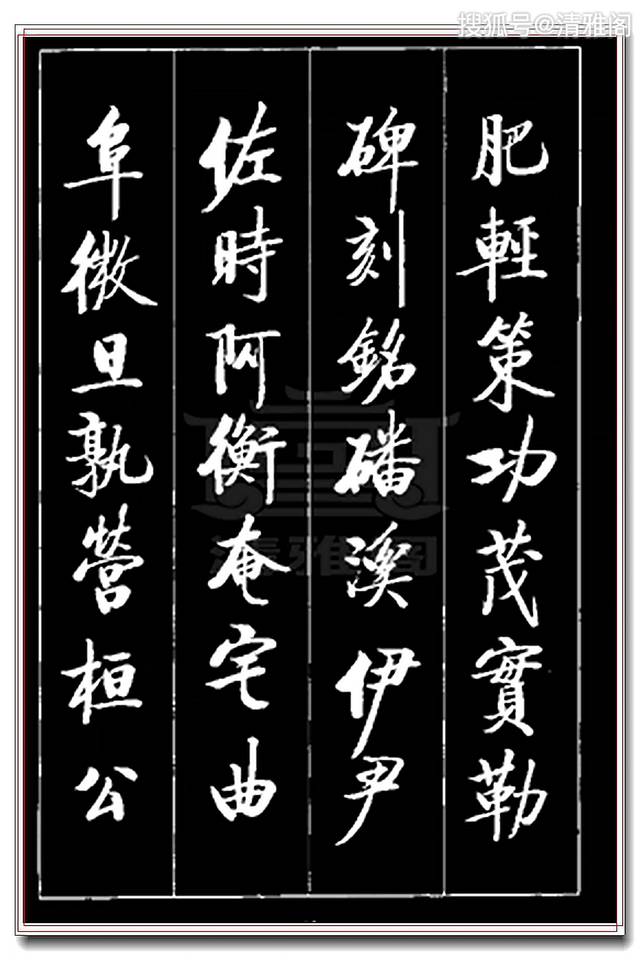 搜狐号@清雅阁
肥輕策功茂實勒
碑刻銘磻溪伊尹
佐時阿衡奄宅曲
阜微旦孰營桓公
清雅阁